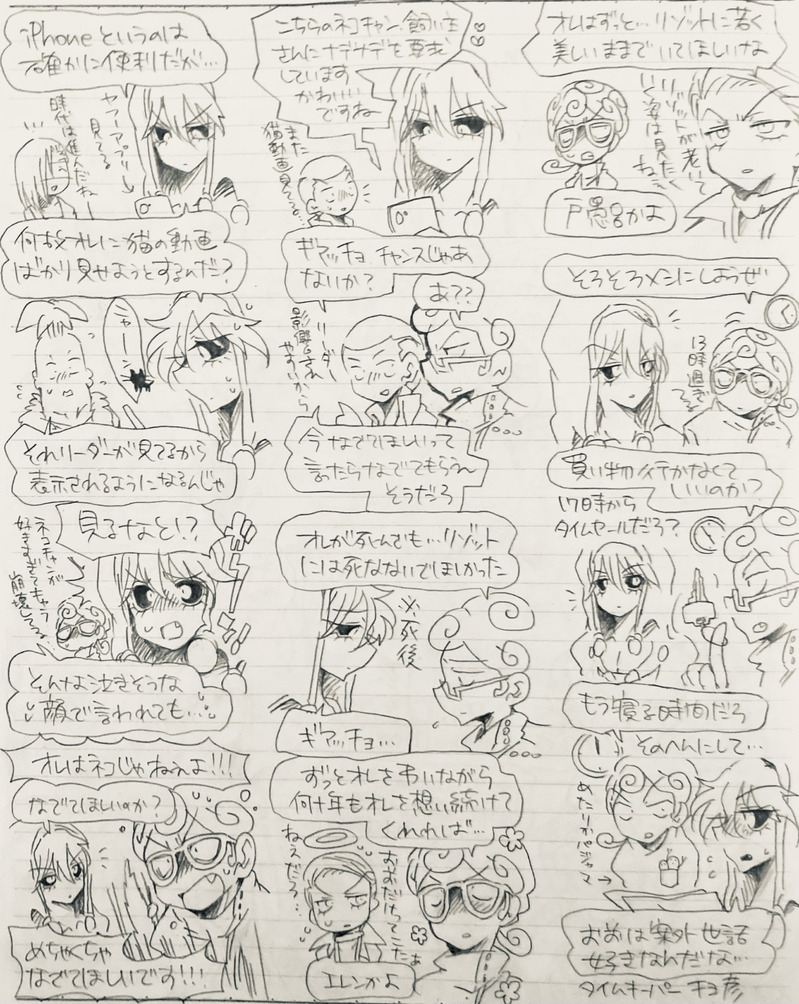 オレはずっと…リゾットに若く
美しいままでいてほしいな
リゾットが老いてく
姿は見たく
ねぇ
戸愚呂かよ
そろそろメシにしようぜ
13時過ぎ
買い物行かなくて
いいのか?
17時から
タイムセールだろ?
もう寝る時間だろ
そのへんにして…
めたりかパジャマ→
お前は案外世話
好きなんだな…
タイムキーパー ギョ彦
こちらのネコチャン、飼い主
さんにナデナデを要求
しています
かわいい
ですね
また
猫動画見てる…
ギアッチョ、チャンスじゃあ
ないか?
あ??
リーダー
影響され
やすいから
今なでてほしいって
言ったらなでてもらえ
そうだろ
オレが死んでも…リゾット
には死なないでほしかった
※死後
ギアッチョ…
ずっとオレを弔いながら
何十年もオレを想い続けて
くれれば…
ねえだろ…
エレンかよ
iPhoneというのは
確かに便利だが…
ヤフーアプリ
見てる
時代は進んだね
何故オレに猫の動画
ばかり見せようとするんだ?
ニャーン
それリーダーが見てるから
表示されるようになるんじゃ
見るなと!?
ネコチャンが
好きすぎてもう
崩壊してる
そんな泣きそうな
顔で言われても…
オレはネコじゃねぇよ!!!
なでてほしいのか?
めちゃくちゃ
なでてほしいです!!!